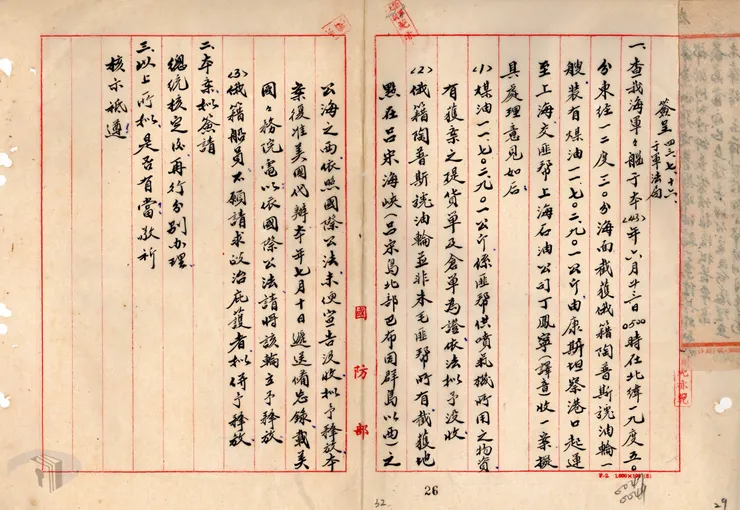 簽呈 四三、七、十六、
于軍法局
一、查我海軍々艦于本(43)年六月廿三日0500時在北緯一九度五〇
分東徑一二度三〇分海面截獲俄籍陶普斯號油輪一
艘裝有煤油一一七〇二九〇一公斤由康斯坦察港口起運
至上海交匪幫上海石油公司丁鳳寧(譯音)收一案擬
具處理意見如后：
(1)煤油一一七〇二九〇一公斤係匪幫供噴氣機所用之物資
有獲案之提貨單及倉單為證依法擬予沒收
(2)俄籍陶普斯號油輪並非朱毛匪幫所有截獲地
點在呂宋海峽(呂宋島北部巴布因群島以西)之
公海之西依照國際公法未便宣告沒收擬予釋放本
案復准美國代辦本年七月十日遞送備忘錄載美
國々務院電以依國際公法請將該輪立予釋放
(3)俄籍船員不願請求政治庇護者擬併予釋放
二、本案擬簽請
總統核定后再行分別办理
三、以上所擬是否有當敬祈
核示祗遵
國防部
26
32
29